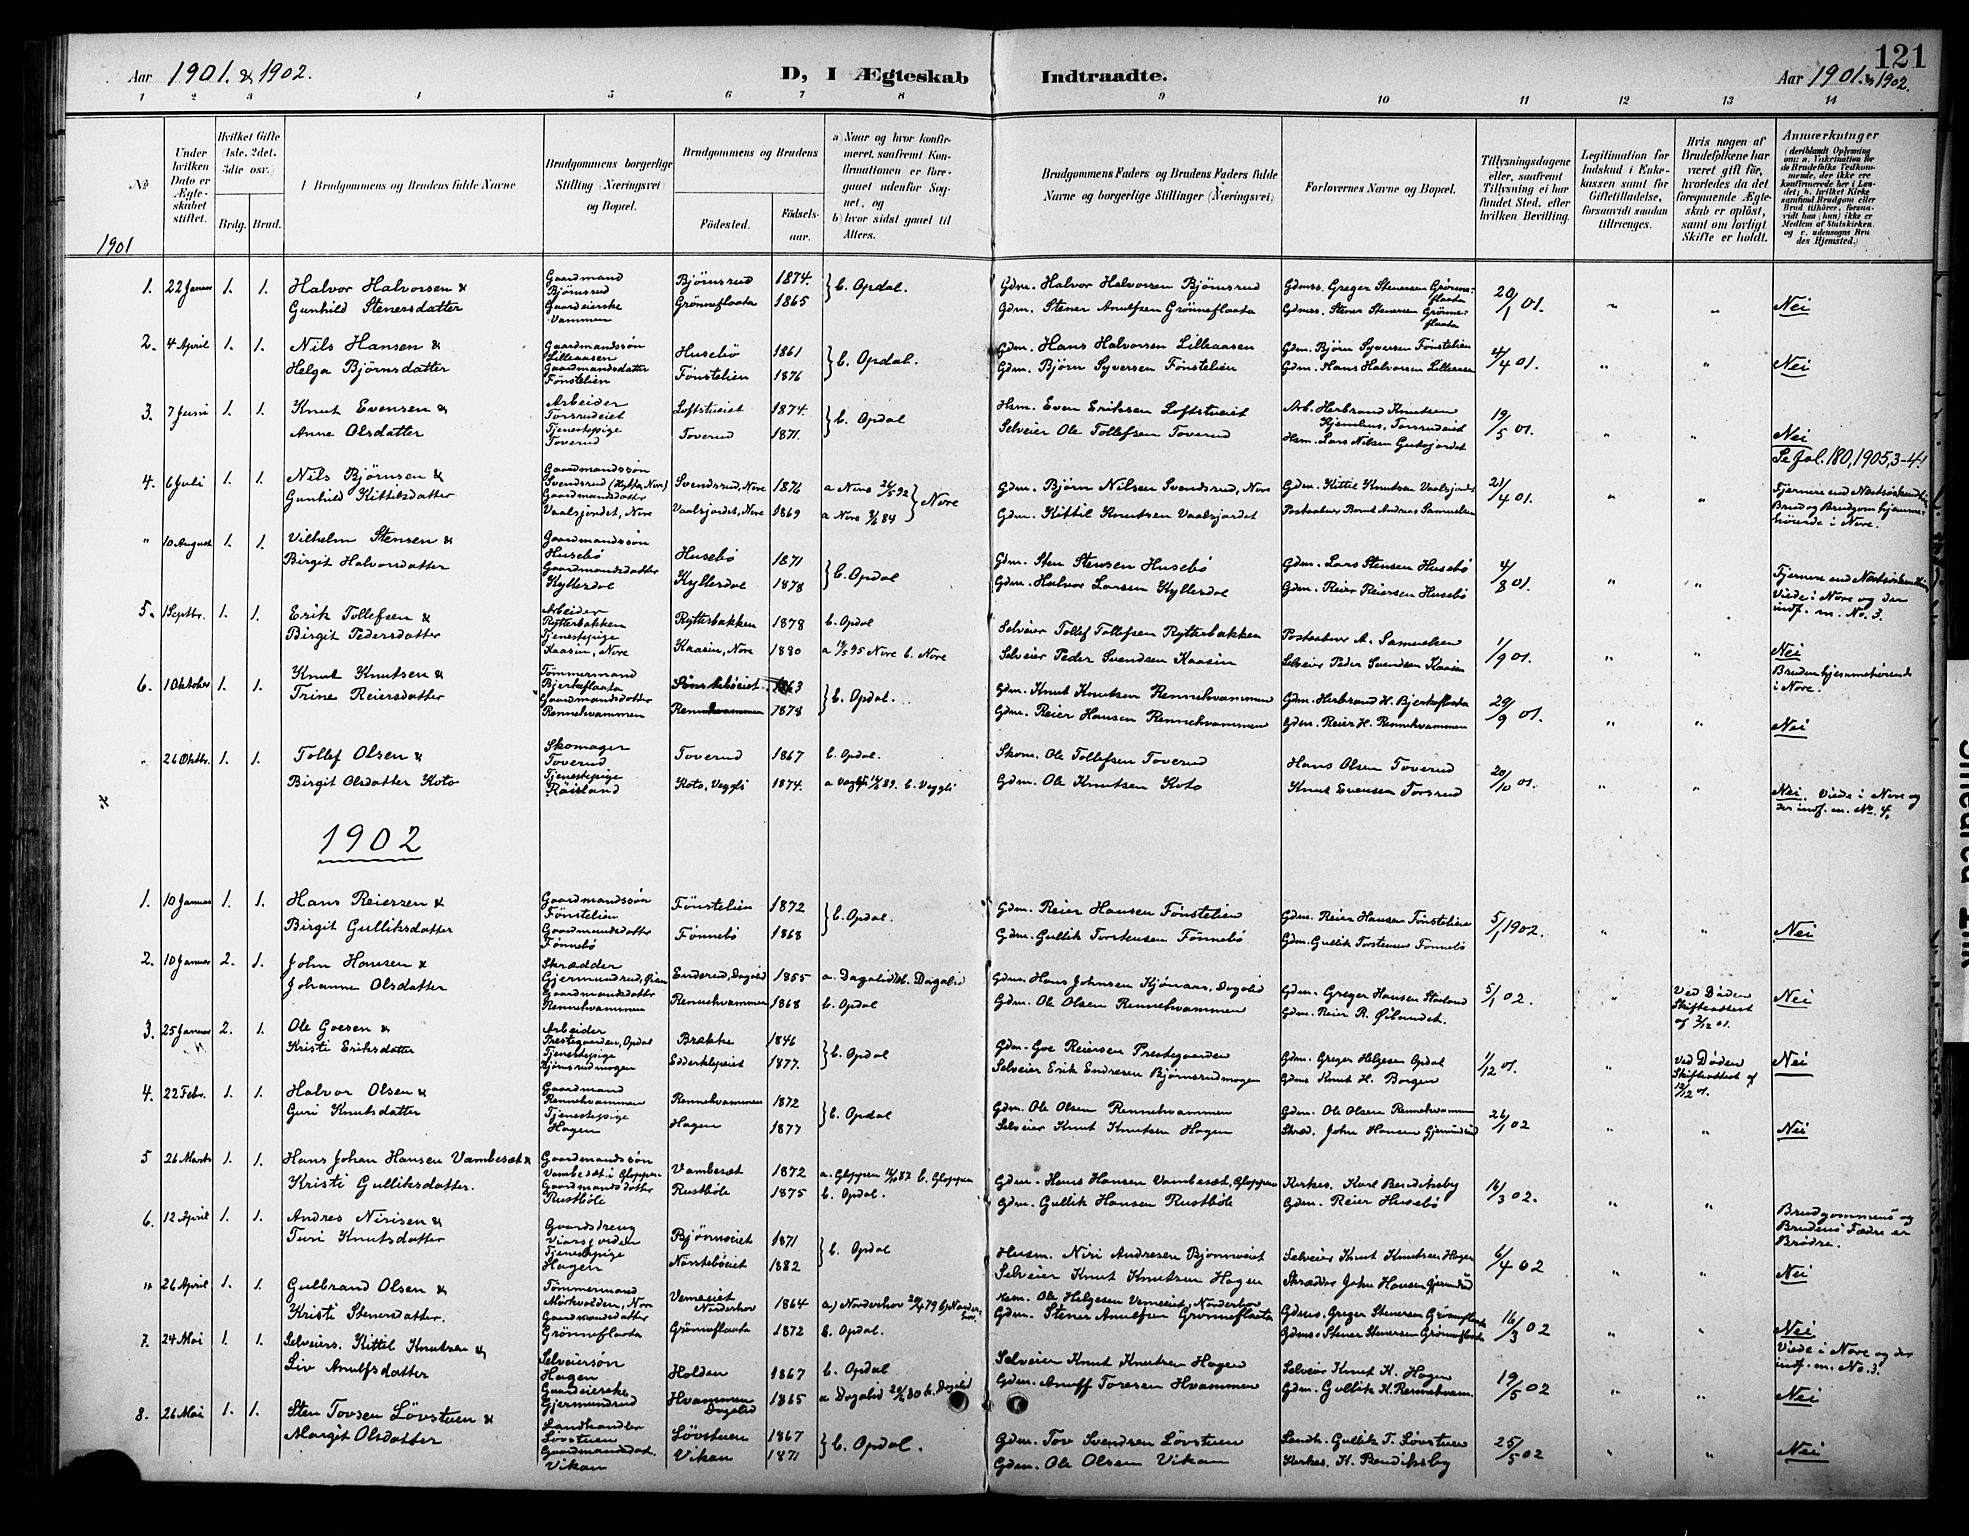 121
Aar 1901. & 1902.
D, I Ægteskab Indtraadte.
Aar 1901. & 1902.
1 2 3 4 5 6 7 8 9 10 11 12 13 14
No
Under hvilken Dato er Ægteskabet stiftet.
Hvilket Gifte (1ste. 2det. 3die osv.)
Brdg. Brud.
Brudgommens og Brudens fulde Navne
Brudgommens borgerlige Stilling (Næringsvei) og Bopæl.
Brudgommens og Brudens
Fødested. Fødselsaar.
a) Naar og hvor konfirmeret, saafremt Konfirmationen er foregaaet udenfor Sognet, og
b) hvor sidst gaaet til Alters.
Brudgommens Faders og Brudens Faders fulde Navne og borgerlige Stillinger (Næringsvei)
Forlovernes Navne og Bopæl.
Tillysningsdagene eller, saafremt Tillysning ei har fundet Sted, efter hvilken Bevilling.
Legitimation for Indskud i Enkekassen samt for Giftetilladelse, forsaavidt saadan tiltrænges.
Hvis nogen af Brudefolkene har været gift før, hvorledes da det foregaaende Ægteskab er opløst, samt om lovligt Skifte er holdt.
Anmærkninger
1901
1. 22 Januar 1. 1. Halvor Halvorsen & Gaardmand Bjørnsrud Bjørnsrud 1874. b. Opdal. Gdm. Halvor Halvorsen Bjørnsrud Gdmss. Greger Stenersen Grønneflaata 20/1 01. " "
Gunhild Stenersdatter Gaardeierske Vammen Grønneflaata 1865 Gdm. Stener Arnulfsen Grønneflaata Gdmss. Stener Stenersen Grønneflaata Nei
2. 4 April 1. 1. Nils Hansen & Gaardmandssøn Lilleaasen Husebö 1861 b. Opdal. Gdm. Hans Halvorsen Lilleaasen Gdm. Bjørn Syversen Fönstelien 4/4 01. " "
Helga Björnsdatter Gaardmandsdatter Fönstelien Fönstelien 1876 Gdm. Björn Syversen Fönstelien Gdm. Hans Halvorsen Lilleaasen Nei
3. 7 Juni 1. 1. Knut Evensen & Arbeider Torsrudeiet Loftstueiet 1874. b. Opdal Hsm. Even Eriksen Loftstueiet Arb. Herbrand Knutsen Torsrudeiet 19/5 01. " "
Anne Olsdatter Tjenestepige Toverud Toverud 1871. Selveier Ole Tollefsen Toverud Hsm. Lars Nilsen Nei
Se Jol. 180, 1905, 3-4!
4. 6 Juli 1. 1. Nils Björnsen & Gaardmandssön Svendsrud (Nore) Svendsrud, Nore 1876 a Nore 26/5 92 Nore Gdm. Björn Nilsen Svendsrud, Nore Gdm. Kittil Knutsen Vaalsjordet 21/4 01. " "
Gunhild Kittelsdatter Gaardmandsdatter Vaalsjordet, Nore Vaalsjordet, Nore 1869 a Nore 84 Gdm. Kittil Knutsen Vaalsjordet Postaabner Bernt Andreas Samuelsen
Brud og Brudgom hjemmehörende i Nore.
" 10 August 1. 1. Vilhelm Stensen & Gaardmandssön Husebö Husebö 1871 b. Opdal Gdm. Sten Stensen Husebö Gdm. Lars Stensen Husebö 4/8 01. " "
Birgit Halvorsdatter Gaardmandsdatter Kyllesdal Kyllesdal 1878 Gdm. Halvor Larsen Kyllesdal Gdm. Reier Reiersen Husebö
Viede i Nore og der indf. m. No. 3.
5. 1 Septbr. 1. 1. Erik Tollefsen & Arbeider Rytterbakken Rytterbakken 1878 b. Opdal Selveier Tollef Tollefsen Rytterbakken Postaabner A. Samuelsen 1/9 01. " "
Birgit Pedersdatter Tjenestepige Kaasin, Nore Kaasin, Nore 1880 a 19/5 95 Nore b. Nore Selveier Peder Svendsen Kaasin Selveier Peder Svendsen Kaasin Nei
Bruden hjemmehörende i Nore.
6. 1 Oktober 1. 1. Knut Knutsen & Tömmermand Bjerkeflaata 1863 b. Opdal. Gdm. Knut Knutsen Rennehvammen Gdm. Herbrand H. Bjerkeflaata 29/9 01. " "
Trine Reiersdatter Gaardmandsdatter Rennehvammen Rennehvammen 1878 Gdm. Reier Hansen Rennehvammen Gdm. Reier H. Rennehvammen Nei
" 26 Oktbr. 1. 1. Tollef Olsen & Skomager Toverud Toverud 1867 b. Opdal. Skom. Ole Tollefsen Toverud Hans Olsen Toverud 20/10 01. " "
Birgit Olsdatter Koto Tjenestepige Röisland Koto, Veggli 1874. a Veggli 89. b. Veggli Gdm. Ole Knutsen Koto Knut Evensen Torsrud Nei. Viede i Nore og der indf. m. No. 4.
1902
1. 10 Januar 1. 1. Hans Reiersen & Gaardmandssön Fönstelien Fönstelien 1872 b. Opdal. Gdm. Reier Hansen Fönstelien Gdm. Reier Hansen Fönstelien 5/1 1902. " "
Birgit Gulliksdatter Gaardmandsdatter Fönnebö Fönnebö 1868 Gdm. Gullik Torstensen Fönnebö Gdm. Gullik Torstensen Fönnebö Nei
2. 10 Januar 2. 1. John Hansen & Skrædder Gjermundrud Enderud, Dagalid 1855 a. Dagalid b. Dagalid Gdm. Hans Johnsen Kjönaas, Dagalid Gdm. Greger Hansen Storland 5/1 02. " Ved Döden Skifteattest af 2/12 01. Nei
Johanne Olsdatter Gaardmandsdatter Rennehvammen Rennehvammen 1868 b. Opdal Gdm. Ole Olsen Rennehvammen Gdm. Reier R. Öilandet.
3. 25 Januar 2. 1. Ole Goesen & Arbeider Prestegaarden, Opdal Brække 1846 b. Opdal Gdm. Goe Reiersen Prestegaarden Gdm. Greger Helgesen Opdal 1/12 01. " Ved Döden Skifteattest af 12/12 01. Nei
Kristi Eriksdatter Tjenestepige Bjönsrudmogen 1877. Selveier Erik Endresen Bjørnsrudmogen Gdms Knut H. Borgen
4. 22 Febr. 1. 1. Halvor Olsen & Gaardmand Rennehvammen Rennehvammen 1872 b. Opdal Gdm. Ole Olsen Rennehvammen Gdm. Ole Olsen Rennehvammen 26/1 02 " "
Guri Knutsdatter Tjenestepige Hagen Hagen 1877 Selveier Knut Knutsen Hagen Skræd. John Hansen Gjermundrud Nei
5 26 Marts 1. 1. Hans Johan Hansen Vambesæt & Gaardmandssön Vambesæt i Gloppen Vambesæt 1872 a. Gloppen 87 b. Gloppen Gdm. Hans Hansen Vambesæt, Gloppen Kirkes. Karl Bendiksby 16/3 02. " "
Kristi Gulliksdatter. Gaardmandsdatter Rustböle Rustböle 1875 b. Opdal. Gdm. Gullik Hansen Rustböle Gdm. Reier Husebö
6. 12 April 1. 1. Andres Nirisen & Gaardsdreng Björnseiet 1871 b. Opdal Husm. Niri Andresen Björnseiet Selveier Knut Knutsen Hagen 6/4 02 " " Brudgommens og Brudens Fædre er Brödre.
Turi Knutsdatter Tjenestepige Hagen Nörsteböeiet 1882 Selveier Knut Knutsen Hagen Skrædder John Hansen Gjermundrud Nei
" 26 April 1. 1. Gulbrand Olsen & Tömmermand Mörkvolden, Nore Vemeeiet Norderhov 1864 a) Norderhov 20/4 79 b) Norderhov. Hsm. Ole Helgesen Vemeeiet, Norderhov Gdmss. Greger Stenersen Grönneflaata 16/3 02 " "
Kristi Stenersdatter. Gaardmandsdatter Grönneflaata Grönneflaata 1872 b. Opdal. Gdm. Stener Arnulfsen Grönneflaata Gdmss Stener Stenersen Grönneflaata Nei
Viede i Nore og der indf. m. No. 3.
7. 24 Mai 1. 1. Selveiers. Kittil Knutsen & Selveiersön Hagen Holden 1867 b. Opdal Selveier Knut Knutsen Hagen Selveier Knut K. Hagen 19/5 02 " "
Liv Arnulfsdatter Gaardeierske Gjermundrud Hvammen Dagalid 1865 a Dagalid 80 b. Dagalid Gdm. Arnulf Toresen Hvammen Gdm. Gullik H. Rennehvam. Nei
8. 26 Mai 1. 1. Sten Tovsen Lövstuen & Landhandler Lövstuen Lövstuen 1867 b. Opdal. Gdm. Tov Svendsen Lövstuen Landh. Gullik T. Lövstuen 25/5 02 " "
Margit Olsdatter Gaardmandsdat. Vikan Vikan 1871 Gdm. Ole Olsen Vikan Kirkes. K. Bendiksby Nei